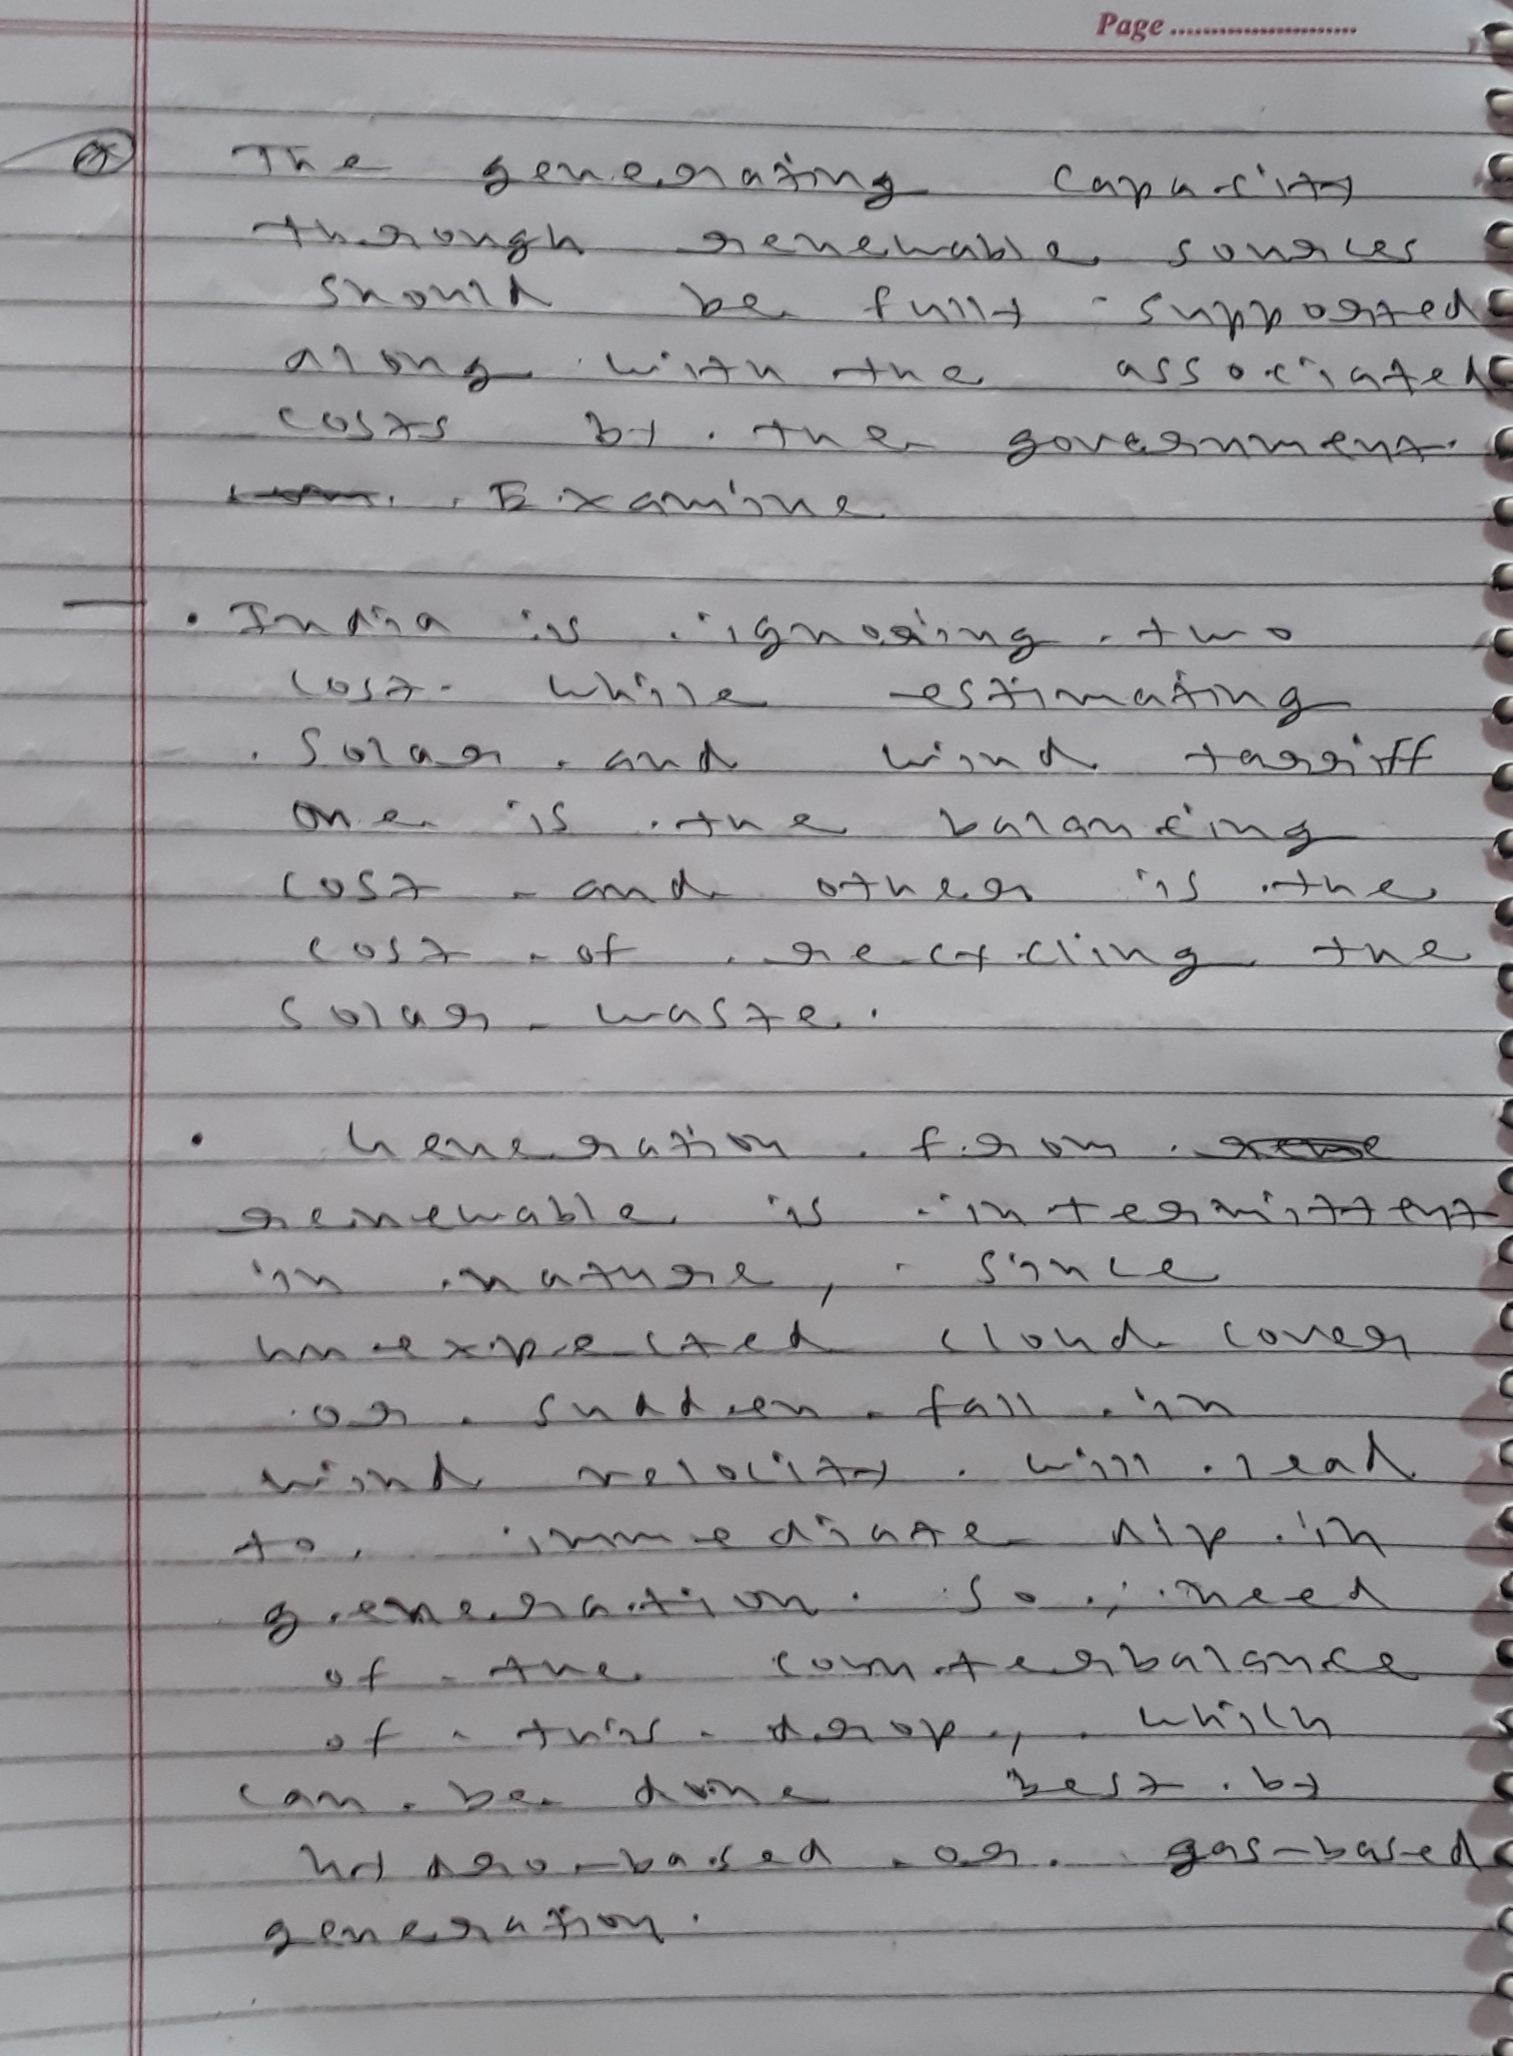 Page ........................
The generating capacity
through renewable sources
should be fully supported
along with the associated
costs by the government.
Examine
• India is ignoring two
cost while estimating
solar and wind tarriff
one is the balancing
cost and other is the
cost of recycling the
solar waste.
• Generation from
renewable is intermittent
in nature, since
unexpected cloud cover
or sudden fall in
wind velocity will lead
to immediate dip in
generation. So, need
of the counterbalance
of this drop, which
can be done best by
hydro-based or gas-based
generation.